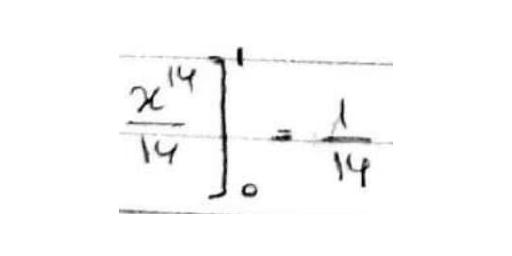 \frac{x^{14}}{14} \Big]_0^1 = \frac{1}{14}